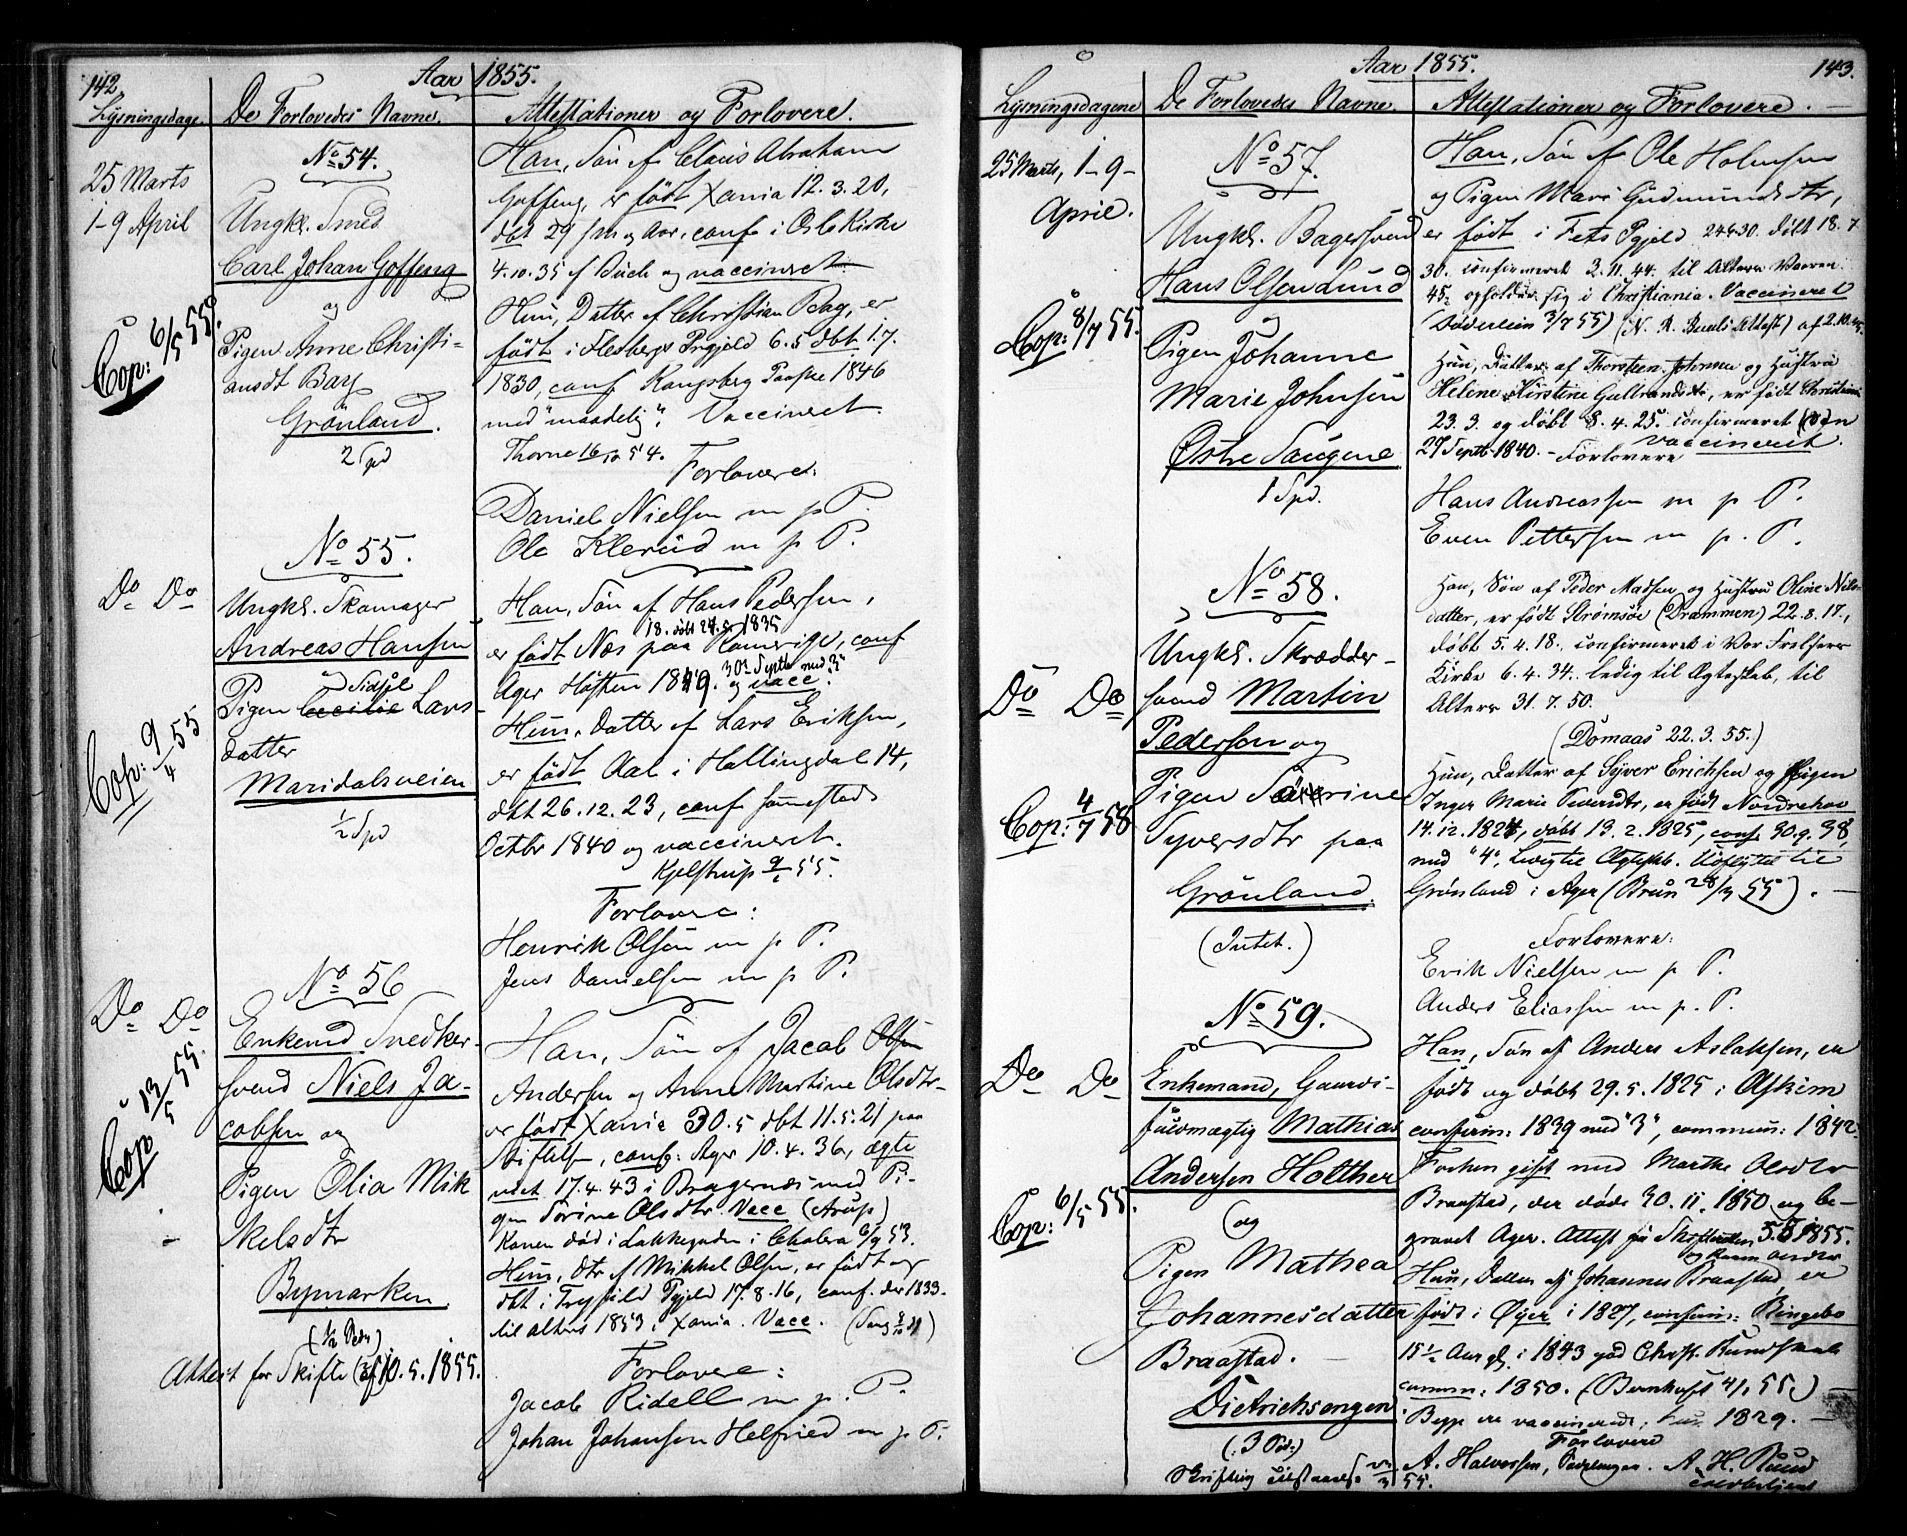 142.
Aar 1855.
Lysningsdage.
De Forlovedes Navne.
Attestationer og Forlovere.
25 Marts
1-9 April
No 54.
Ungk. Smed
Carl Johan Goffeng
og
Pigen Anne Christi-
ansdt Bag
Grönland.
2 Spd
Cop: 6/5 55.
Han, Søn af Claus Abraham
Goffeng, er født Xania 12.3.20,
dbt 29 s/m og Aar, conf i Oslo Kirke
4.10.35 af og vaccineret
Hun, Datter af Christian Bag, er
født i Flesbergs Prgjeld 6.5 dbt 1.7.
1830, conf Kongsberg Paaske 1846
med "maadelig". Vaccineret.
Thorne 16/10 54.
Forlovere:
Daniel Nielsen m p P.
Ole Klerud m p P.
Do Do
No 55.
Ungk. Skomager
Andreas Hansen
og Sidsel
Pigen Cecilie Lars-
datter
Maridalsveien
1/2 Spd
Cop: 9/4 55
Han, Søn af Hans Pedersen,
18. døbt 24. 1835
er født Næs paa Romerige, conf
30te Septbr med 3
Ager Høsten 1849. og vacc.
Hun, Datter af Lars Eriksen,
er født Aal i Hallingdal 14,
dbt 26.12.23, conf sammesteds
Octbr 1840 og vaccineret.
Kjelstrup 55.
Forlovere:
Henrik Olsen m p P.
Jens Danielsen m p P.
Do Do
No 56
Enkemd Snedker-
svend Niels Ja-
cobsen og
Pigen Olia Mik
kelsdtr
Bymarken.
(1/2 )
Attest for Skifte af 10.5.1855.
Cop: 13/5 55.
Han, Søn af Jacob Olsen
Andersen og Anne Martine Olsdtr-
er født Xania 30.5 dbt 11.5.21 paa
Stiftelsen, conf: Ager 10.4.36, ægte
viet 17.4.43 i Bragernæs med Pi-
gen Sorine Olsdtr. Vacc (Arup)
Konen død i Lakkegaden i Cholera 6/9 53.
Hun, dtr af Mikkel Olsen, er født og
dbt i Trysild Pgjeld 17.8.16, conf. der 1833.
til alters 1853 i Xania. Vacc.
Forlovere:
Jacob Ridell m. p. P.
Johan Johansen Helfried m p P.
143.
Aar 1855.
Lysningsdagene
De Forlovedes Navne.
Attestationer og Forlovere.
25 Marts, 1-9-
April.
No 57.
Ungk. Bagersvend
Hans Olsen Lund
og
Pigen Johanne
Marie Johnsen
Østre Saugene
1 Spd.
Cop: 8/7 55.
Han, Søn af Ole Holmsen
og Pigen Mari Gudmundsdtr,
er født i Fets Pgjeld 24630. døbt 18.7
30. confirmeret 3.11.44. til Alters Vaaren
45, opholder sig i Christiania. Vaccineret
(Døderlein 3/7 55) (N. R. Attest) af 2.10.45.
Hun, Datter af Thorsten Johnsen og Hustru
Helene Kirstine Gulbrandsdtr, er født Christiania
23.3. og døbt 8.4.25. confirmeret
27 Septb 1840. - Forlovere vaccineret.
Hans Andreassen m p P.
Even Pettersen m. p. P.
Do Do
No 58.
Ungk. Skrædder-
svend Martin
Pedersen og
Pigen Sørine
Syversdtr paa
Grönland.
(Intet.)
Cop: 4/7 58
Han, Søn af Peder Madsen og Hustru Oline Nils-
datter, er født Strømsøe (Drammen) 22.8.17.,
døbt 5.4.18., confirmeret i Vor Frelsers
Kirke 6.4.34. ledig til Ægteskab, til
Alters 31.7.50.
(Domaas 22.3.55.)
Hun, Datter af Syver Ericksen og Pigen
Inger Marie Siversdtr, er født Norderhov
14.12.1824, døbt 13.2.1825, conf. 30.9.38,
med "4". Ledig til Ægteskb. Udflyttet til
Grønland i Ager (Bruun 28/3 55).
Forlovere:
Erik Nielsen m p P.
Anders Eliassen m. p. P.
Do Do
No 59.
Enkemand, Gaards-
fuldmægtig Mathias
Andersen Holther
og
Pigen Mathea
Johannesdatter
Braastad.
Dietrichsengen
(:3 :)
Skriftlig tilstaaelse 55.
Cop: 6/5 55.
Han, Søn af Anders Aslaksen, er
født og døbt 29.5.1825 i Askim
conferm: 1839 med "3", commun: 1842.
Forhen gift med Marthe Olsdtr
Braastad, der døde 30.11.1850 og be-
gravet Ager. Attest fra Skifteretten 5.5.1855.
Hun, Datter af Johannes Braastad, er
født i Øyer i 1827, conferm: Ringebo
15 1/2 Aar gl. i 1843 god Christ. Kundskab
commun: 1850. (Bernhoft 4/1 55)
Begge ere vaccinerede, hun 1829.
Forlovere
A. Halvorsen, A. H. Ruud